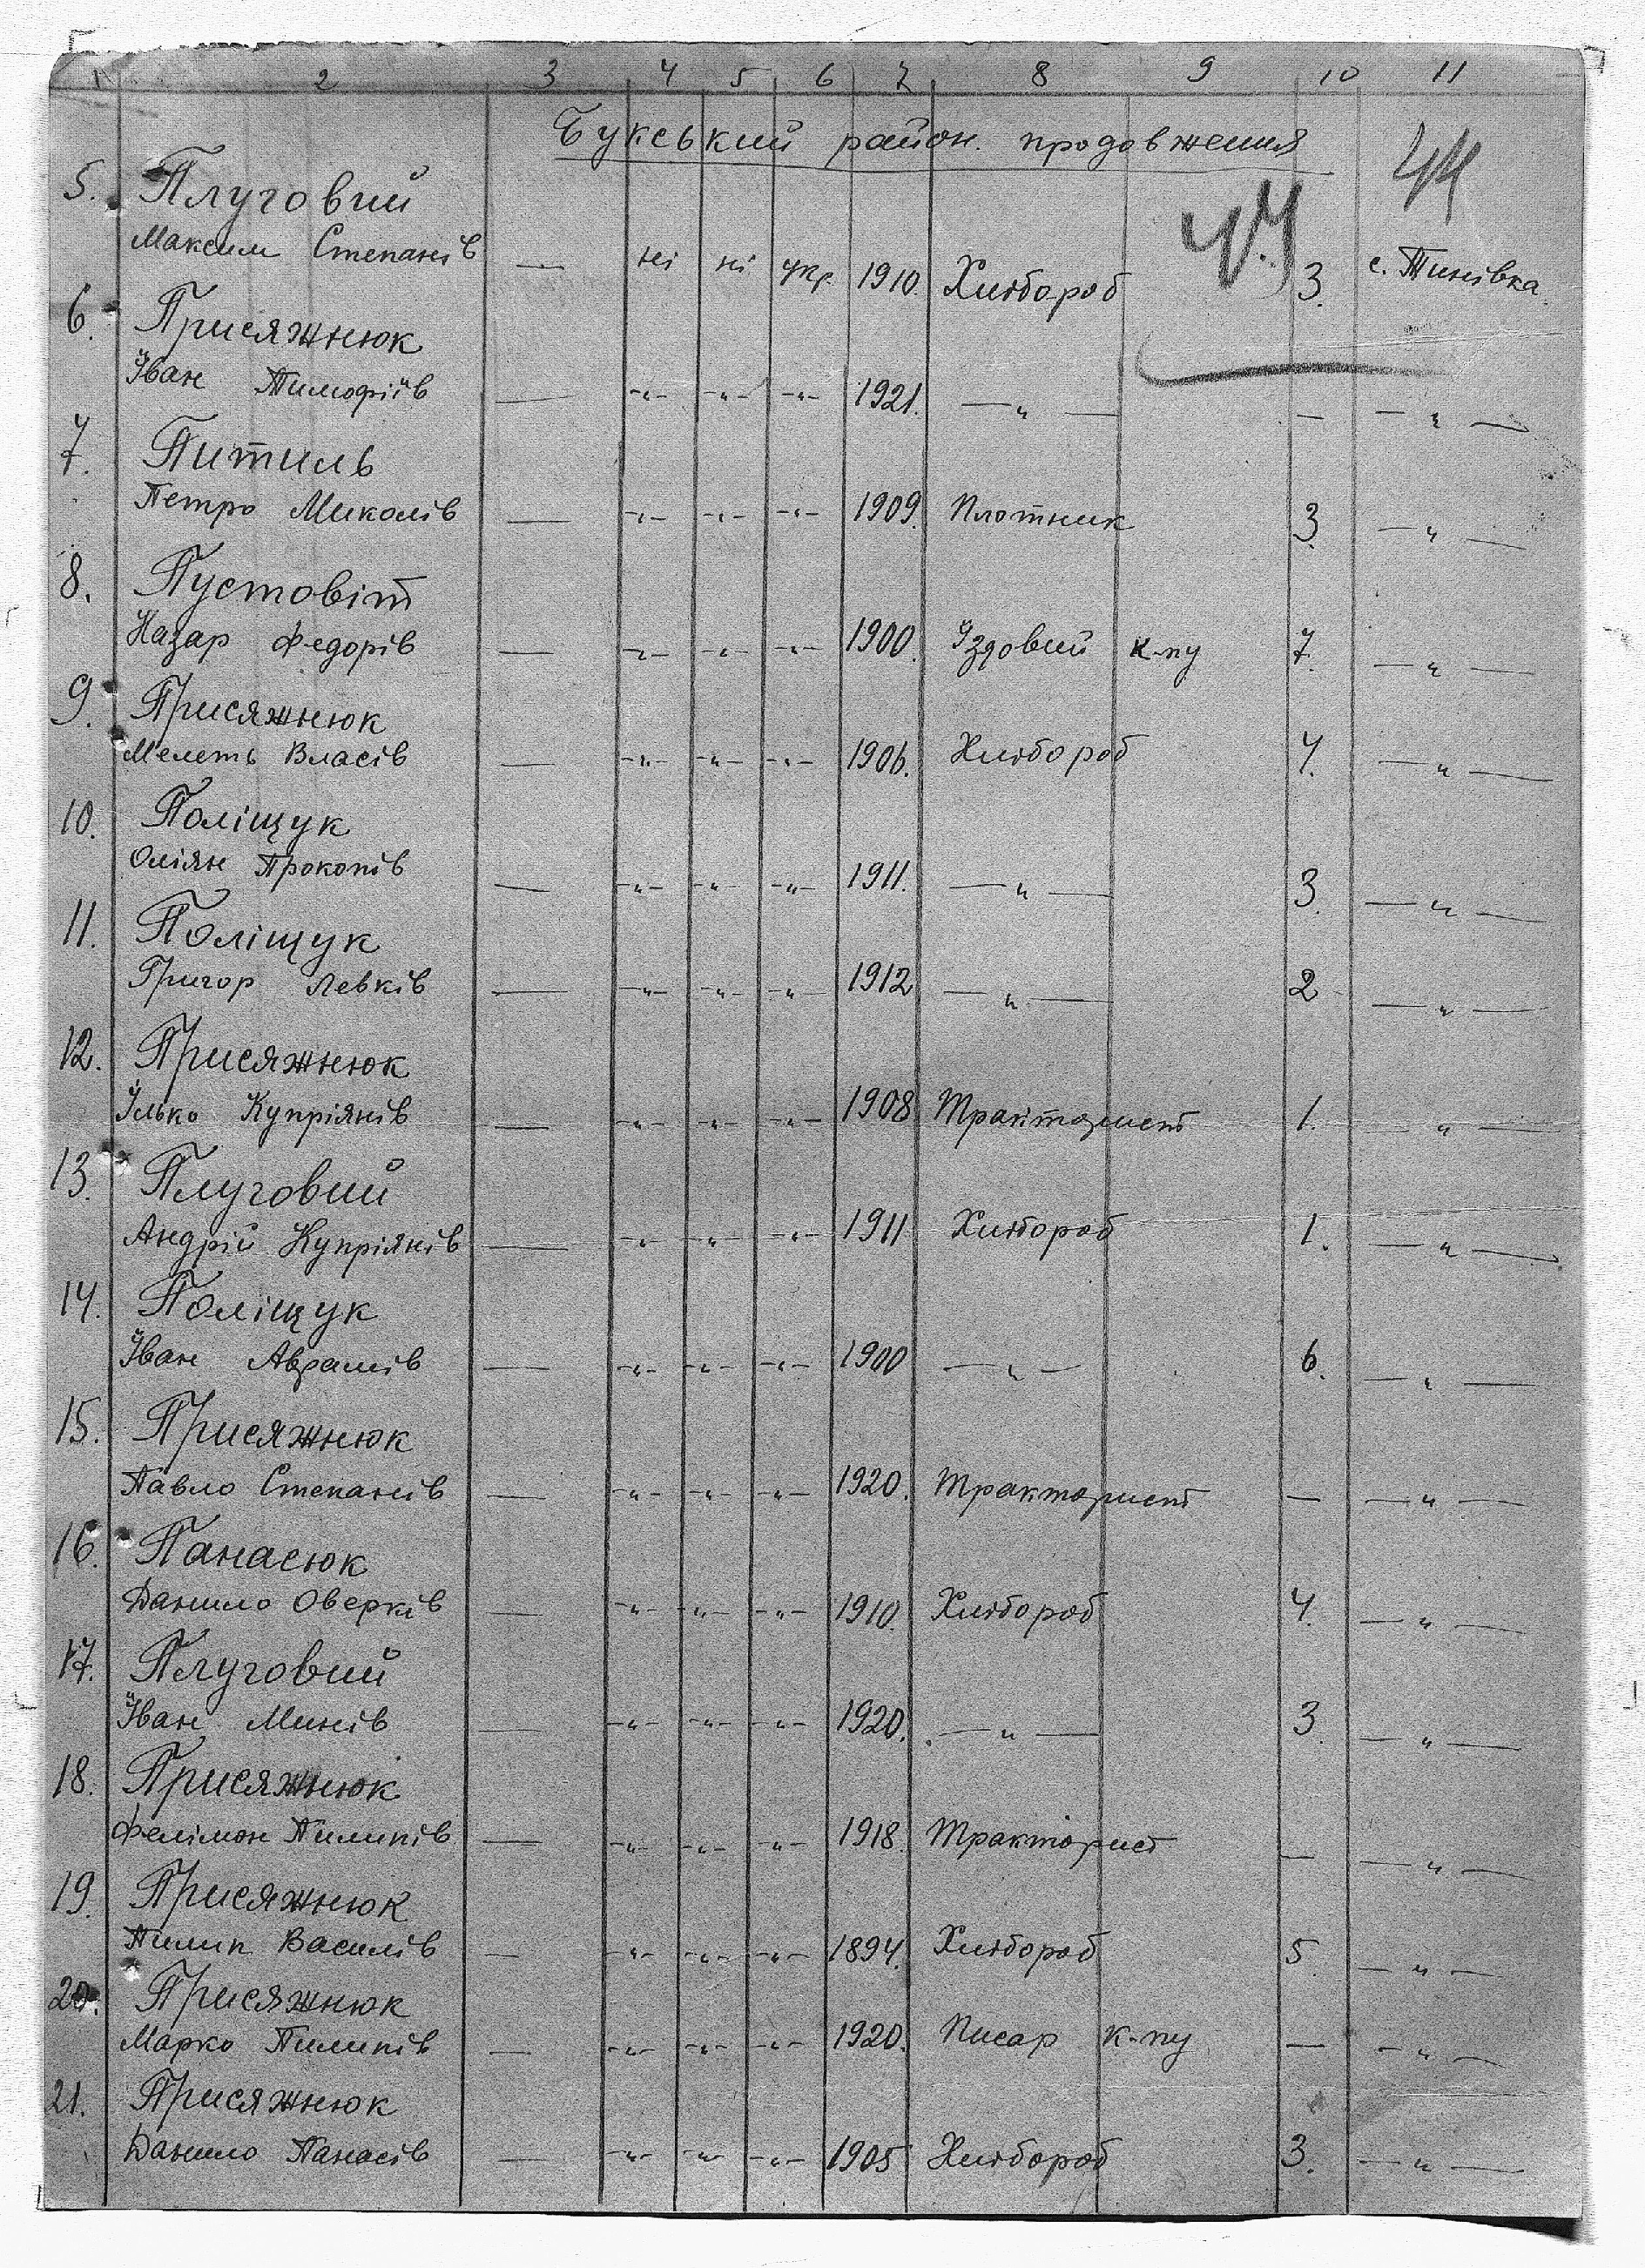 1 2 3 4 5 6 7 8 9 10 11
Букський район. продовження
44
44
5. Плуговий
Максим Степанів — ні ні укр. 1910. Хлібороб 3. с. Тинівка.
6. Присяжнюк
Іван Тимофіїв — -"- -"- -"- 1921. —"— — —"—
7. Питиль
Петро Миколів — -"- -"- -"- 1909. Плотник 3. —"—
8. Пустовіт
Назар Федорів — -"- -"- -"- 1900. Їздовий к-пу 7. —"—
9. Присяжнюк
Мелеть Власів — -"- -"- -"- 1906. Хлібороб 4. —"—
10. Поліщук
Оліян Прокопів — -"- -"- -"- 1911. —"— 3. —"—
11. Поліщук
Григор Левків — -"- -"- -"- 1912 —"— 2 —"—
12. Присяжнюк
Ілько Купріянів — -"- -"- -"- 1908 Тракторист 1. —"—
13. Плуговий
Андрій Купріянів — -"- -"- -"- 1911 Хлібороб 1. —"—
14. Поліщук
Іван Аврамів — -"- -"- -"- 1900 —"— 6. —"—
15. Присяжнюк
Павло Степанів — -"- -"- -"- 1920. Тракторист — —"—
16. Панасюк
Данило Оверків — -"- -"- -"- 1910. Хлібороб 4. —"—
17. Плуговий
Іван Минів — -"- -"- -"- 1920. —"— 3. —"—
18. Присяжнюк
Фелімон Пилипів — -"- -"- -"- 1918. Тракторист — —"—
19. Присяжнюк
Пилип Василів — -"- -"- -"- 1894. Хлібороб 5. —"—
20. Присяжнюк
Марко Пилипів — -"- -"- -"- 1920. Писар к-пу — —"—
21. Присяжнюк
Данило Панасів — -"- -"- -"- 1905 Хлібороб 3. —"—